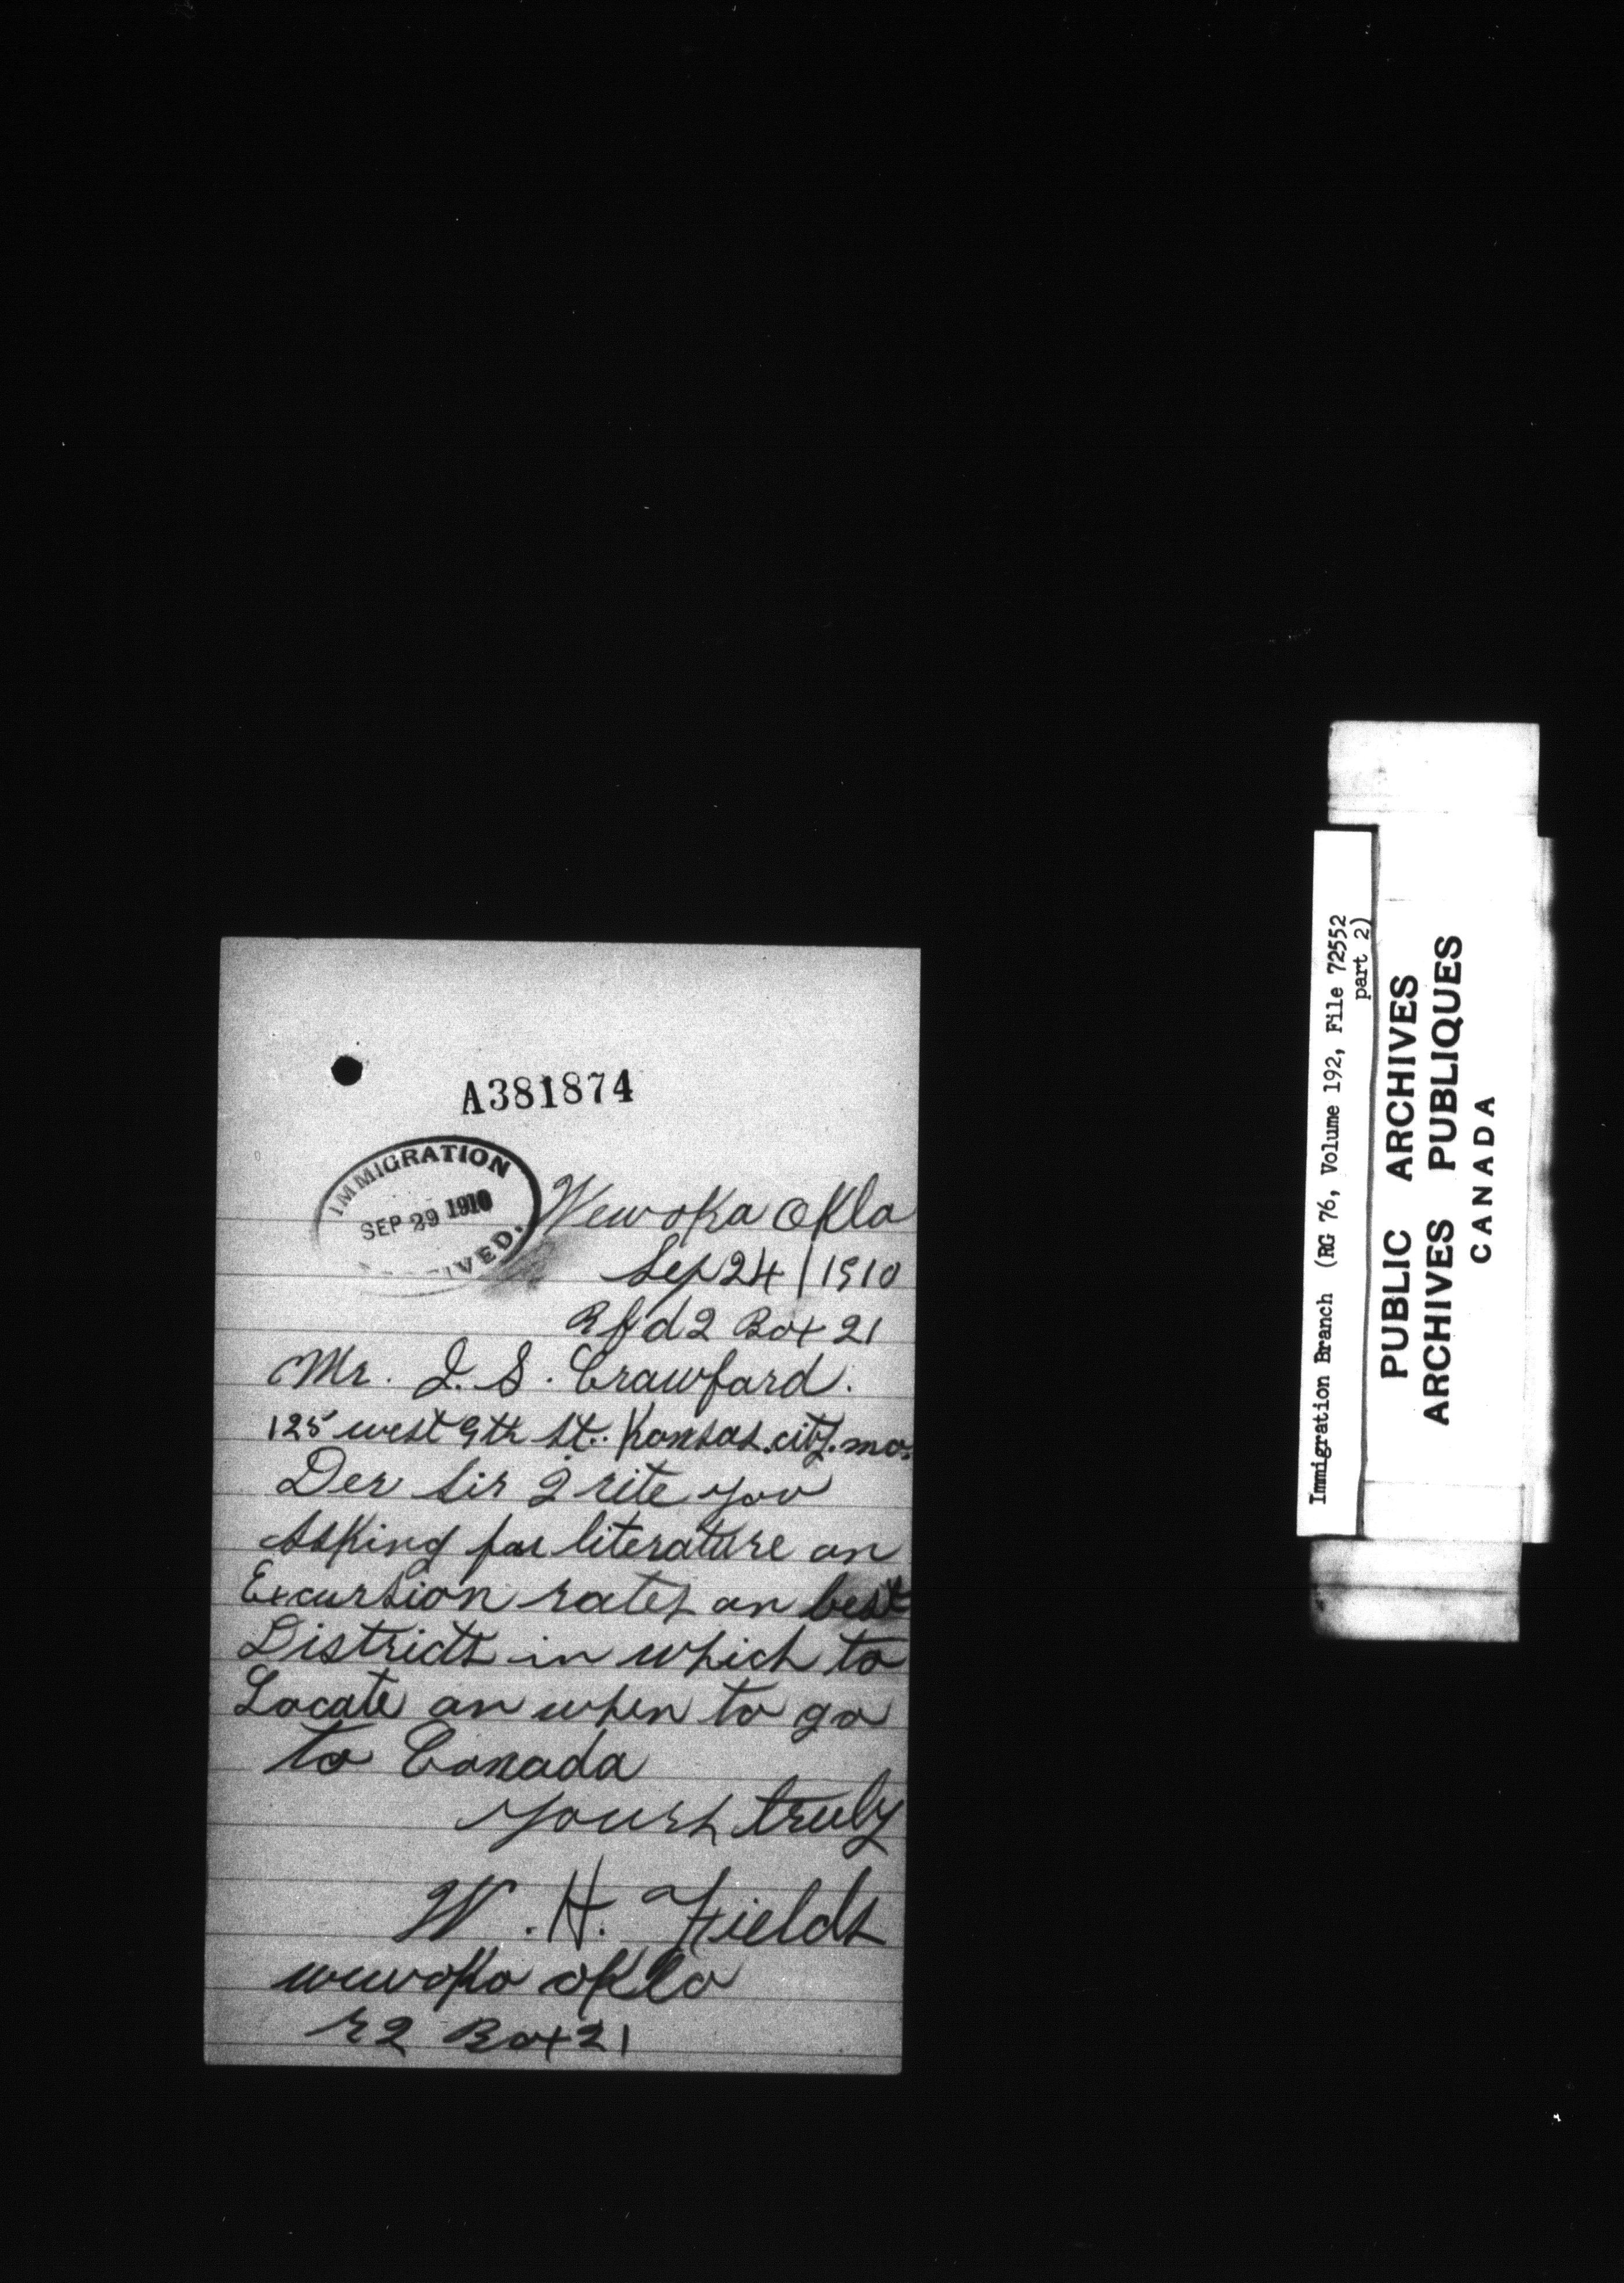 A381874
IMMIGRATION
SEP 29 1910
Wewoka Okla
Sep 24/1910
Rfd 2 Box 21
Mr. J. S. Crawford.
125 west 9th st. Kansas. city. mo.
Der Sir I rite you
Asking for literature an
Excursion rates an best
Districts in which to
Locate an when to go
to Canada
yours truly
W. H. Fields
wewoka okla
r2 Box 21
Immigration Branch (RG 76, Volume 192, File 72552
part 2)
PUBLIC ARCHIVES
ARCHIVES PUBLIQUES
CANADA